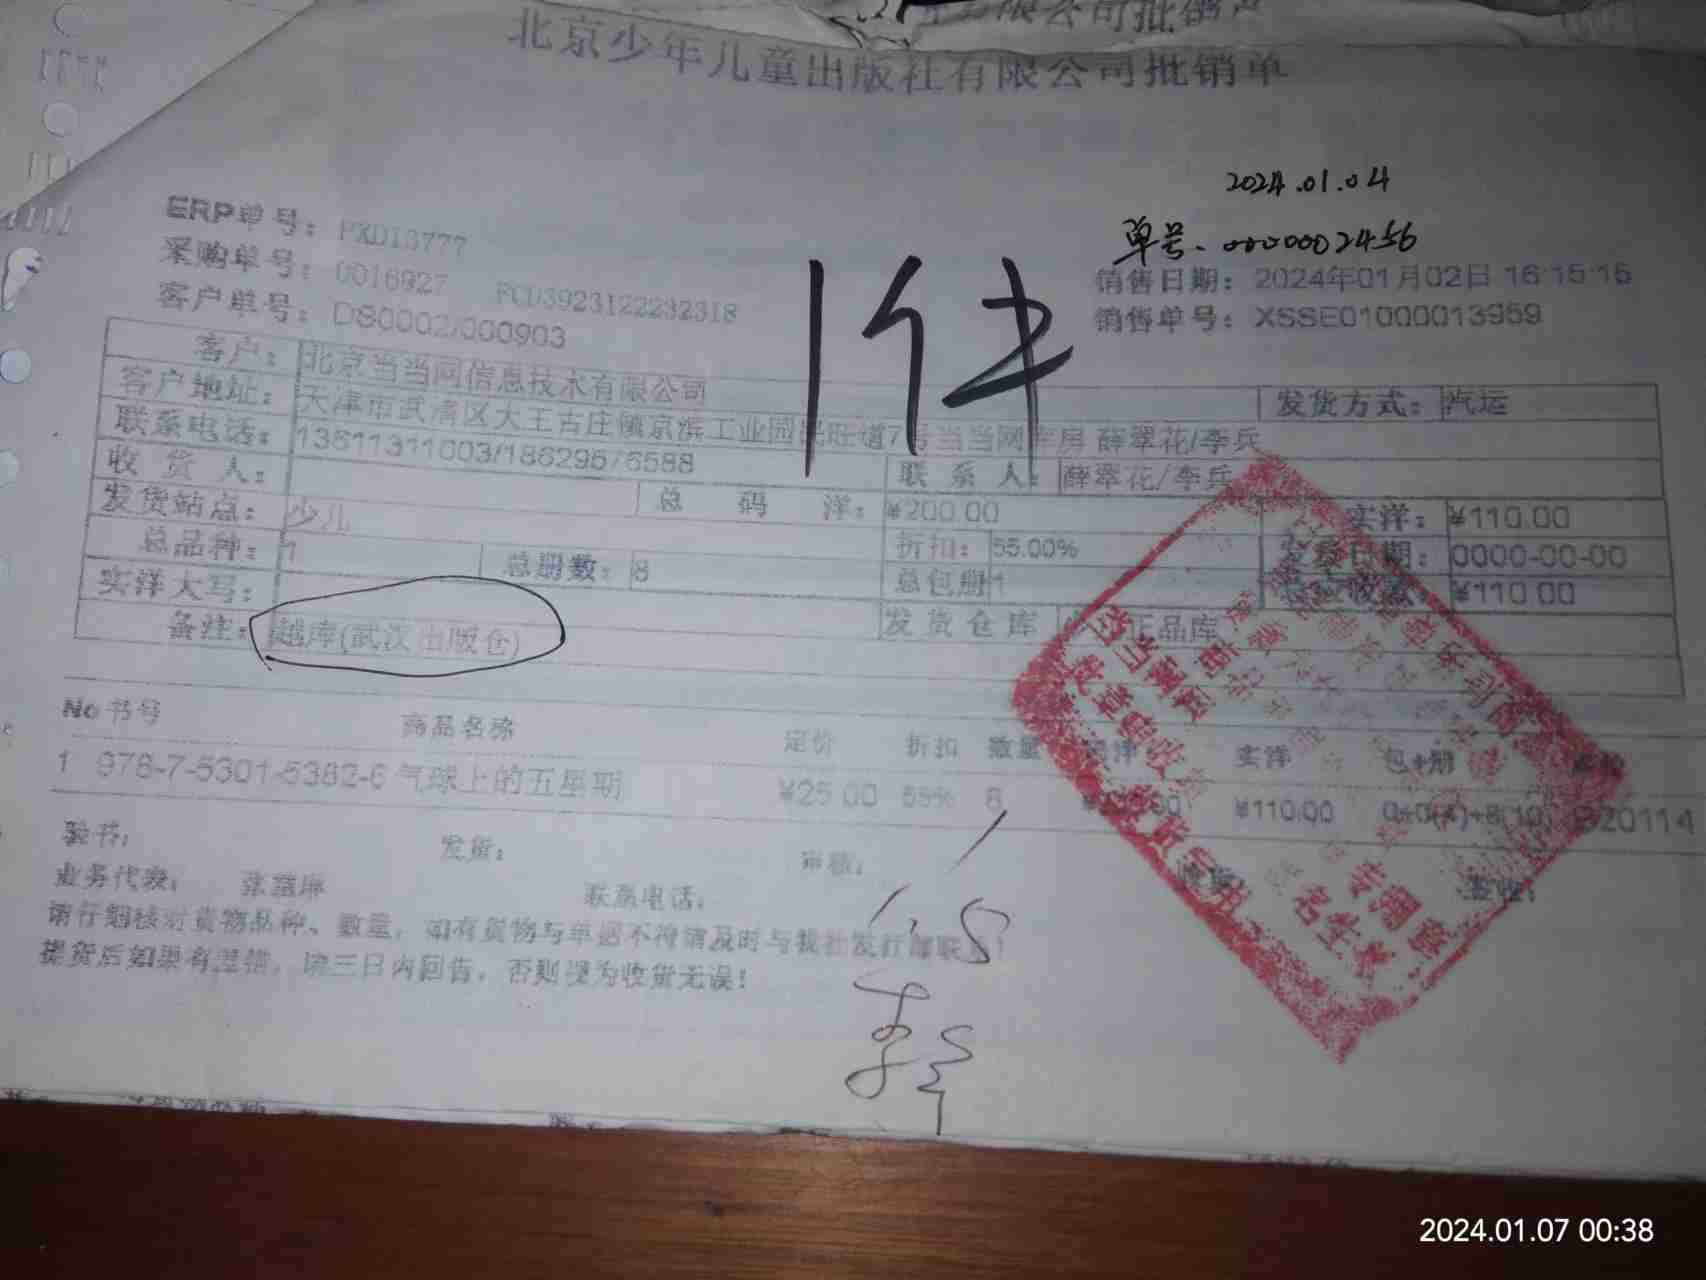 北京少年儿童出版社有限公司批销单
2024.01.04
单号. 00000002456
ERP单号: PXD13777
采购单号: 0016927 PCD3923122232318
客户单号: DS0002/000903
1件
销售日期: 2024年01月02日 16:15:15
销售单号: XSSE01000013959
客户: 北京当当网信息技术有限公司
发货方式: 汽运
客户地址: 天津市武清区大王古庄镇京滨工业园 旺道7号当当网库房 薛翠花/李兵
联系电话: 13611311003/18629576588
联系人: 薛翠花/李兵
收货人:
总码洋: ¥200.00
实洋: ¥110.00
发货站点: 少儿
折扣: 55.00%
发票日期: 0000-00-00
总品种: 1
总册数: 8
总包册 1
¥110.00
实洋大写:
发货仓库 正品库
备注: 越库(武汉出版仓)
No 书号 商品名称 定价 折扣 数量 码洋 实洋 包+册
1 978-7-5301-5382-6 气球上的五星期 ¥25.00 55% 8 ¥110.00 0+0(4)+8(10) 20114
验书: 发货: 审核: 签收:
业务代表: 联系电话:
请仔细核对货物品种、数量, 如有货物与单据不符请及时与我社发行部联系!
提货后如果有差错, 请三日内回告, 否则视为收货无误!
1.5
当当网
收货专用
专用章
2024.01.07 00:38